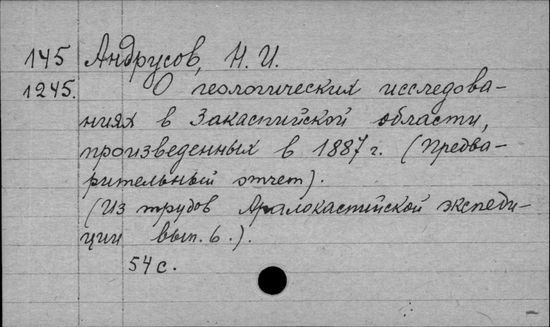 145 Андрусов, Н. И.
1245. О геологических исследова-
ниях в Закаспийской области,
произведенных в 1887 г. (Предва-
рительный отчет).
(Из трудов Аралокаспийской экспеди-
ции вып. 6.).
54 с.